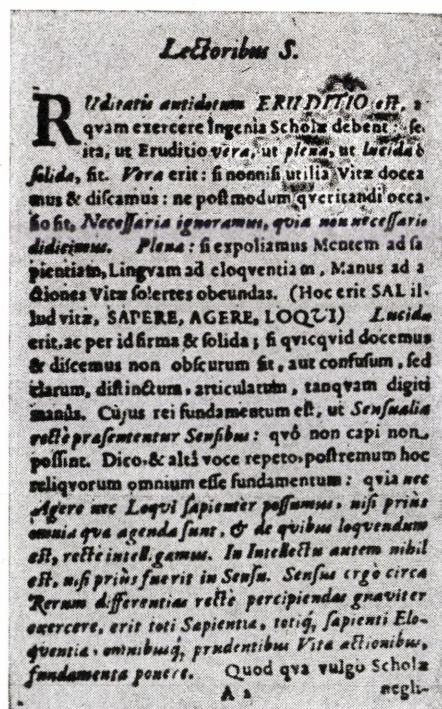 Lectoribus S.
RUditatis antidotum ERUDITIO est, a
qvam exercere Ingenia Scholæ debent: se
ita, ut Eruditio vera, ut plena, ut lucida &
solida, sit. Vera erit: si nonnisi utilia Vitæ docea
mus & discamus: ne postmodum qveritandi occa-
sio sit, Necessaria ignoramus, quia non necessario
didicimus. Plena: si expoliamus Mentem ad sa
pientiam, Lingvam ad eloqventiam, Manus ad a
ctiones Vitæ solertes obeundas. (Hoc erit SAL il-
lud vitæ, SAPERE, AGERE, LOQUI) Lucida
erit, ac per id firma & solida; si qvicqvid docemus
& discemus non obscurum sit, aut confusum, sed
clarum, distinctum, articulatum, tanqvam digiti
manûs. Cûjus rei fundamentum est, ut Sensualia
rectè præsententur Sensibus: qvô non capi non
possint. Dico, & altâ voce repeto, postremum hoc
reliqvorum omnium esse fundamentum: qvia nec
Agere nec Loqvi sapienter possumus, nisi priùs
omnia qvæ agenda sunt, & de qvibus loqvendum
est, rectè intell gamus. In Intellectu autem nihil
est, nisi priùs fuerit in Sensu. Sensus ergò circa
Rerum differentias rectè percipiendas gnaviter
exercere, erit toti Sapientiæ, totiq́; sapienti Elo-
qventiæ, omnibusq́; prudentibus Vitæ actionibus,
fundamenta ponere. Quod qva vulgo Scholæ
A 2 negli-